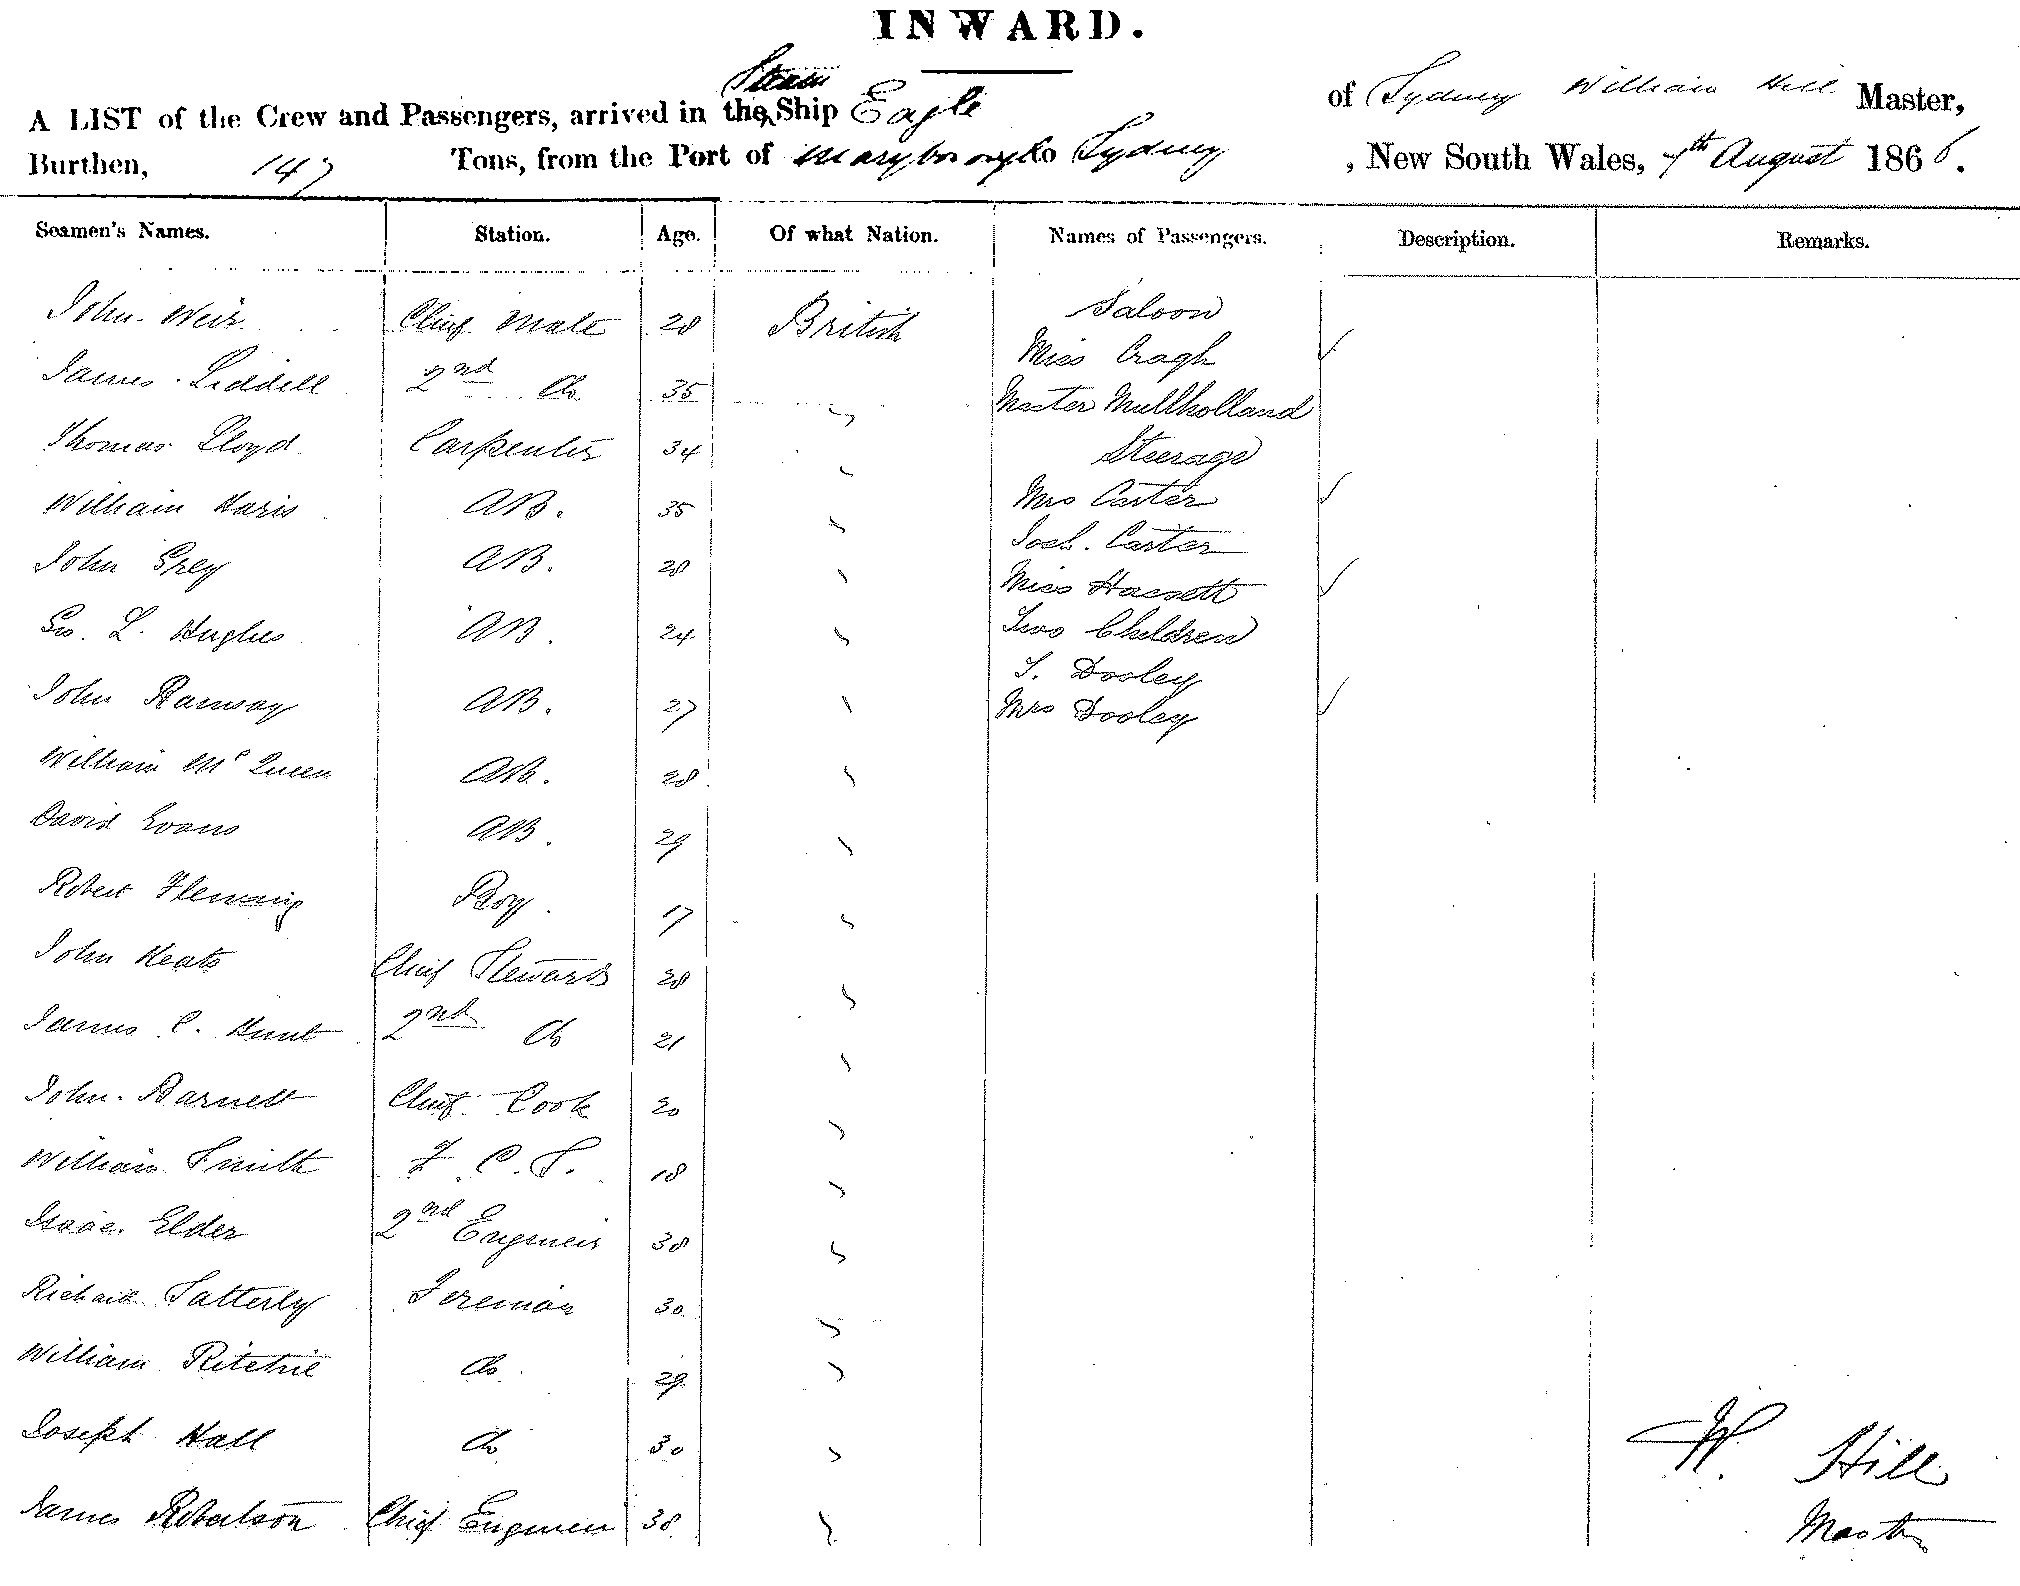 INWARD.
A LIST of the Crew and Passengers, arrived in the Steam Ship Eagle of Sydney William Hill Master,
Burthen, 147 Tons, from the Port of Maryborough to Sydney, New South Wales, 7th August 1866.
Seamen's Names. Station. Age. Of what Nation. Names of Passengers. Description. Remarks.
John Weir Chief Mate 28 British Saloon
Miss Cragh
James Liddell 2nd Do 35 " Master Mullholland
Thomas Lloyd Carpenter 34 " Steerage
William Haris AB. 35 " Mrs Carter
Josh. Carter
John Grey AB. 28 " Miss Hassett
Geo. L. Hughes AB. 24 " Two Children
T. Dooley
John Ramsay AB. 27 " Mrs Dooley
William McQueen AB. 28 "
David Evans AB. 29 "
Robert Fleming Boy. 17 "
John Keats Chief Steward 28 "
James C. Hunt 2nd Do 21 "
John Barnett Chief Cook 20 "
William Smith F. C. S. 18 "
Isaac Elder 2nd Engineer 38 "
Richard Satterly Foreman 30 "
William Ritchie do 29 "
Joseph Hall do 30 "
James Robertson Chief Engineer 38 "
W. Hill
Master